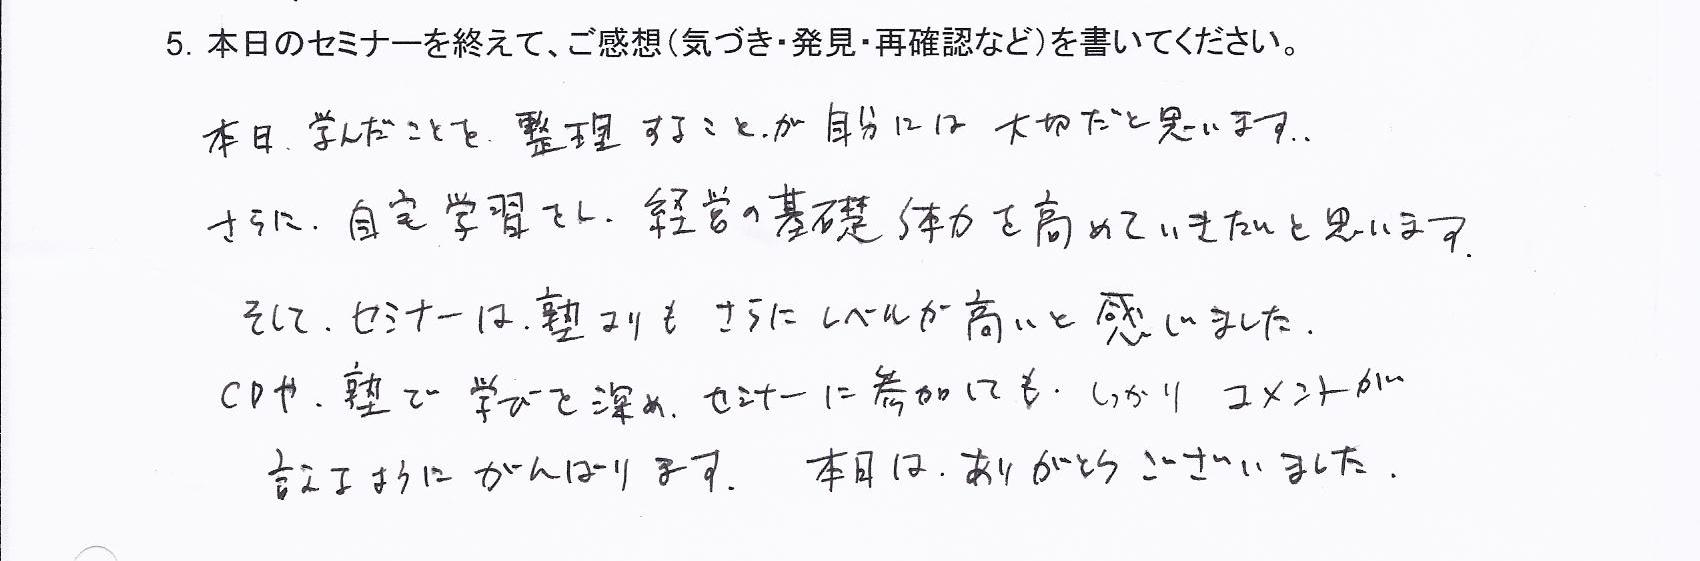 5. 本日のセミナーを終えて、ご感想（気づき・発見・再確認など）を書いてください。
本日、学んだことを、整理することが自分には大切だと思います。
さらに、自宅学習をし、経営の基礎体力を高めていきたいと思います。
そして、セミナーは、塾よりもさらにレベルが高いと感じました。
CDや、塾で学びを深め、セミナーに参加しても、しっかりコメントが
言えるようにがんばります。 本日は、ありがとうございました。